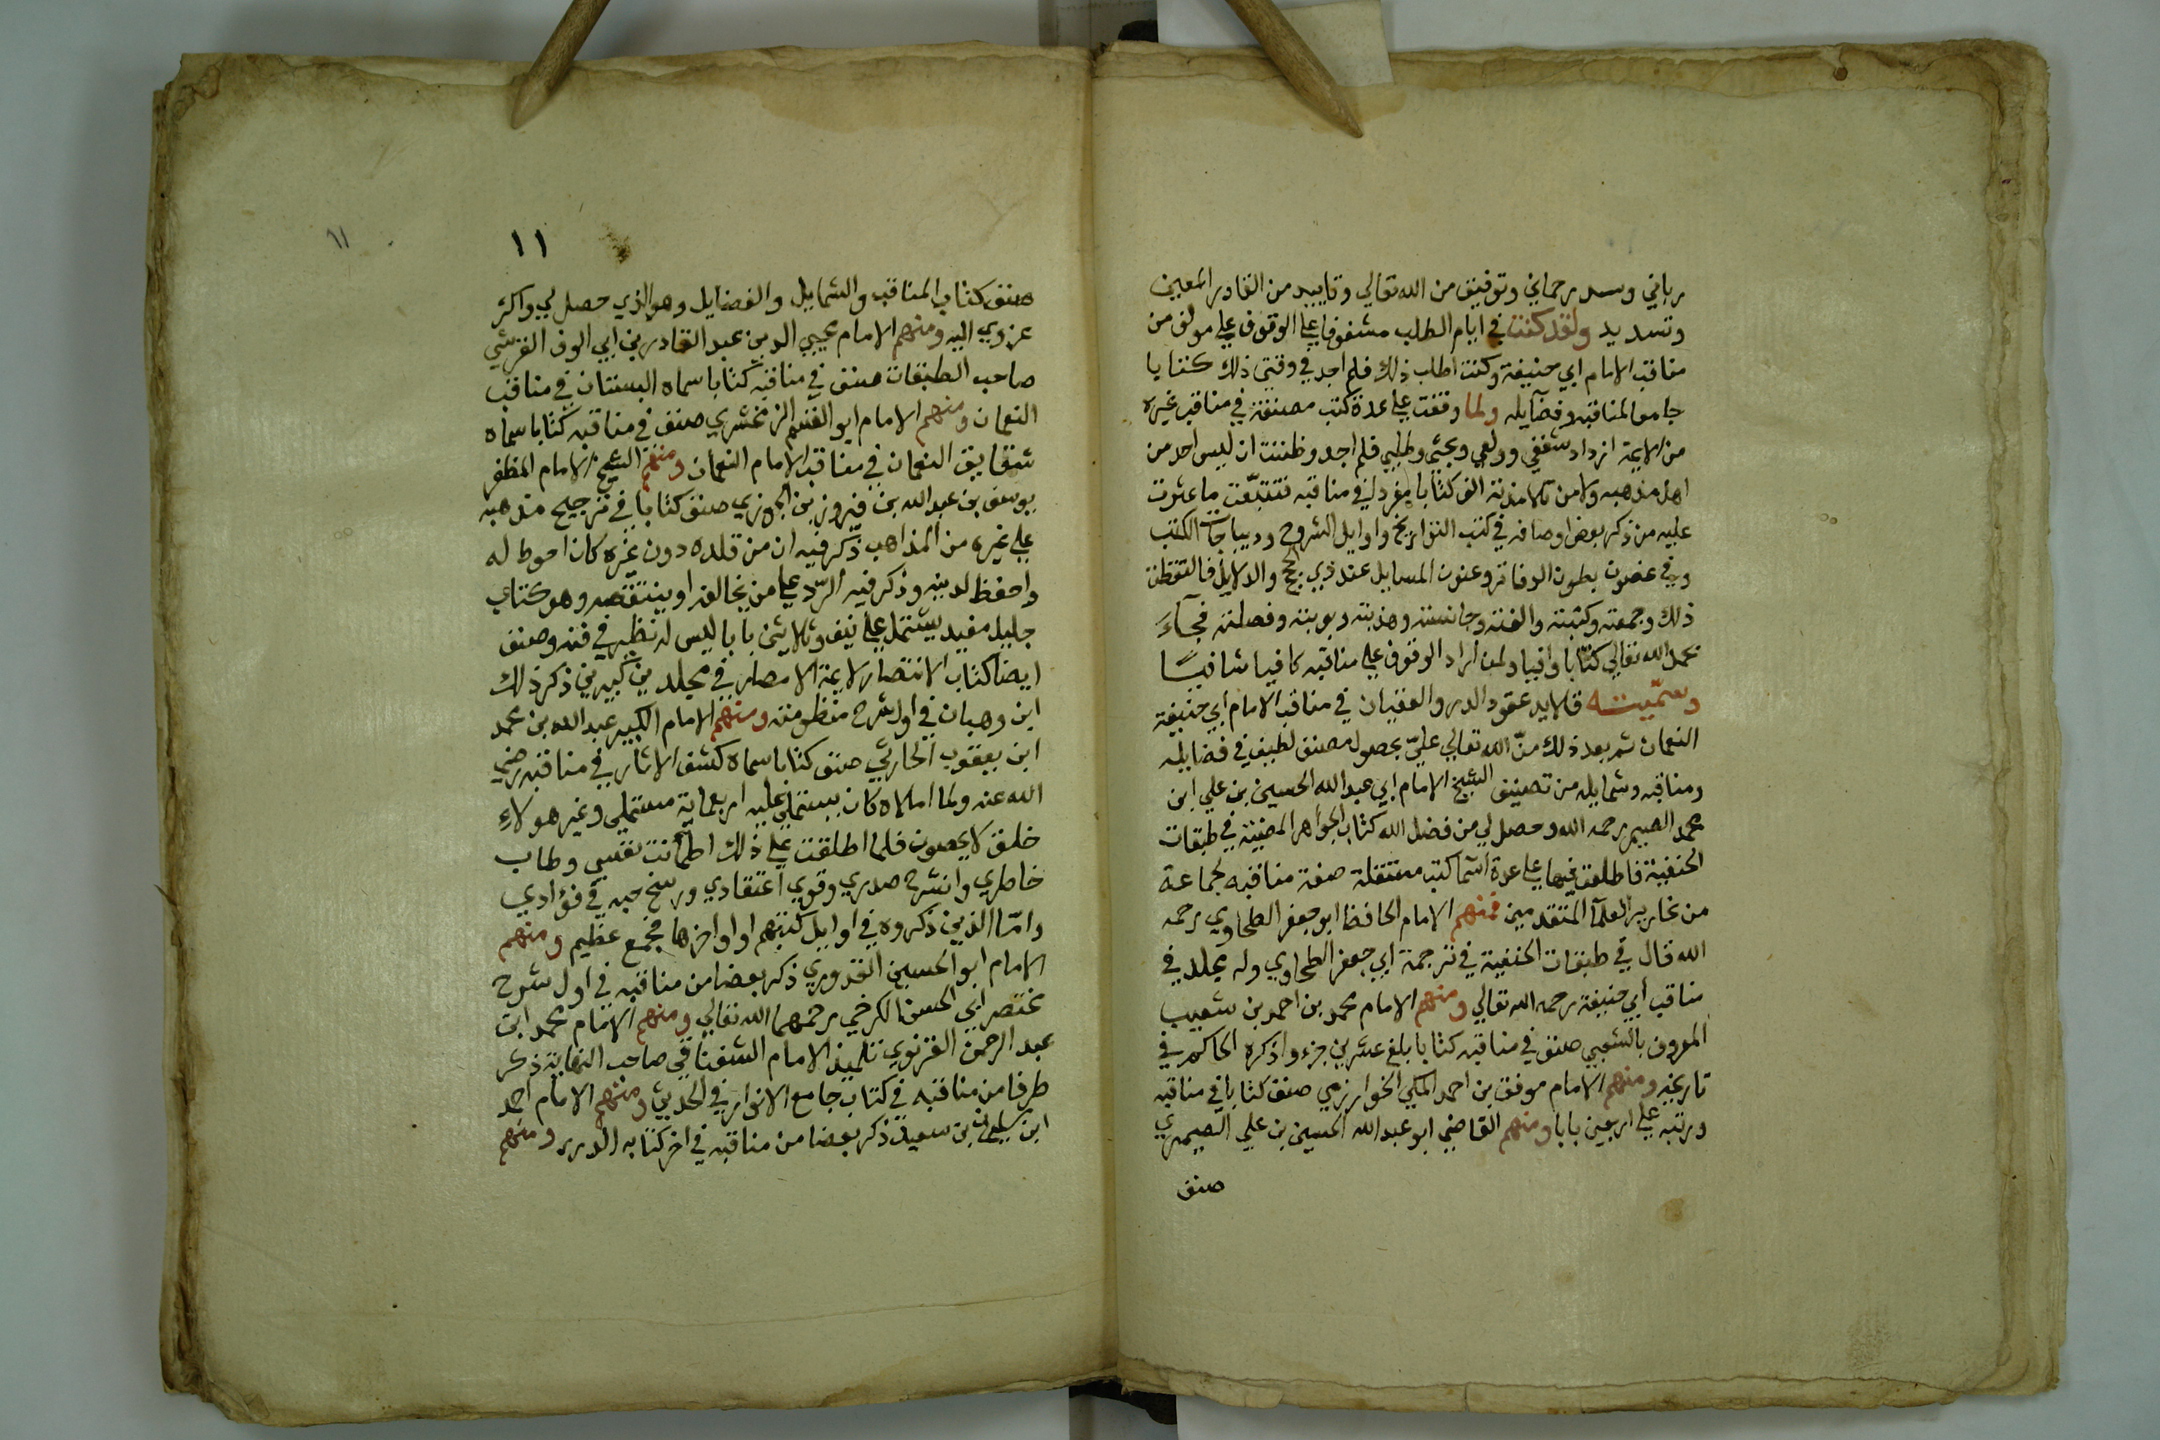 رباني وسد رحماني وتوفيق من الله تعالي وتاييد من القادر المعين
وتسديد ولقد كنت في ايام الطلب مشغوفا علي الوقوف علي مولف من
مناقب الامام ابي حنيفة وكنت اطلب ذلك فلم اجد في وقتي ذلك كتابا
جامعا لمناقبه وفضآيله ولما وقفت علي عدة كتب مصنفة في مناقب غيره
من الايمة ازداد شغفي وولعي وبحثي وطلبي فلم اجد وظننت ان ليس احد من
اهل مذهبه ولا من تلامذته الف كتابا مفردا في مناقبه فتتبّعت ما عثرت
عليه من ذكر بعض اوصافه في كتب التواريخ واوايل الشروح وديباجات الكتب
وفي غضون بطون الدفاتر وعنون المسايل عند ذوي الحجج والدلايل فالتقطت
ذلك وجمعته وكتبته والفته وجانسته وهذبته وبوبته وفصلته فجآءَ
بحمد الله تعالي كتابا وافيا ولمن اراد الوقوف علي مناقبه كافيا شافيًا
وسمّيته قلايد عقود الدر والعقيان في مناقب الامام ابي حنيفة
النعمان ثم بعد ذلك منّ الله تعالي عليّ بحصول مصنف لطيف في فضايله
ومناقبه وشمايله من تصنيف الشيخ الامام ابي عبد الله الحسين بن علي ابن
محمد الصيمر رحمه الله وحصل لي من فضل الله كتاب الجواهر المضيية في طبقات
الحنفية فاطلعت فيها علي عدة اسما كتب مستقلة صنفة مناقبه لجماعة
من نحارير العلمآ المتقدمين فمنهم الامام الحافظ ابو جعفر الطحاوي رحمه
الله قال في طبقات الحنفية في ترجمة ابي جعفر الطحاوي وله مجلد في
مناقب أبي حنيفة رحمه الله تعالي ومنهم الامام محمد بن احمد بن شعيب
المعروف بالشعبي صنف في مناقبه كتابا بلغ عشرين جزء واذكره الحاكم في
تاريخه ومنهم الامام موفق بن احمد المكي الخوارزمي صنف كتابا في مناقبه
ورتبه علي اربعين بابا ومنهم القاضي ابو عبد الله الحسين بن علي الصيمري
صنف
١١
١١
صنف كتاب المناقب والشمايل والفضايل وهو الذي حصل لي واكثر
عزوي اليه ومنهم الامام محيي الدين عبد القادر بن ابي الوفا القرشي
صاحب الطبقات صنف في مناقبه كتابا سماه البستان في مناقب
النعمان ومنهم الامام ابو القسم الزمخشري صنف في مناقبه كتابا سماه
شقايق النعمان في مناقب الامام النعمان ومنهم الشيخ الامام المظفر
يوسف بن عبد الله بن فيروز بن الجوزي صنف كتابا في ترجيح مذهبه
علي غيره من المذاهب ذكر فيه ان من قلده دون غيره كان احوط له
واحفظ لدينه وذكر فيه الرّد علي من يخالفه او ينتقّصه وهو كتاب
جليل مفيد يشتمل علي نيف وثلاثين بابا ليس له نظير في فنه وصنف
ايضا كتاب الانتصار لايمة الامصار في مجلدين كبيرين ذكر ذلك
ابن وهبان في اول شرح منظومته ومنهم الامام الكبير عبد الله بن محمد
ابن يعقوب الحارثي صنف كتابا سماه كشف الاثار في مناقبه رضي
الله عنه ولما املاه كان يستملي عليه اربعماية مستملي وغير هولاءِ
خلق لا يحصون فلما اطلعت علي ذلك اطمانت نفسي وطاب
خاطري وانشرح صدري وقوي اعتقادي ورسخ حبه في فؤادي
وامّا الذين ذكروه في اوايل كتبهم او اواخرها فجمع عظيم ومنهم
الامام ابو الحسين القدوري ذكر بعضا من مناقبه في اول شرح
مختصر ابي الحسن الكرخي رحمهما الله تعالي ومنهم الامام محمد ابن
عبد الرحمن الغزنوي تلميذ الامام السغناقي صاحب النهاية ذكر
طرفا من مناقبه في كتاب جامع الانوار في الحديث ومنهم الامام احمد
ابن سليمان بن سعيد ذكر بعضا من مناقبه في اخر كتابه الدرر ومنهم